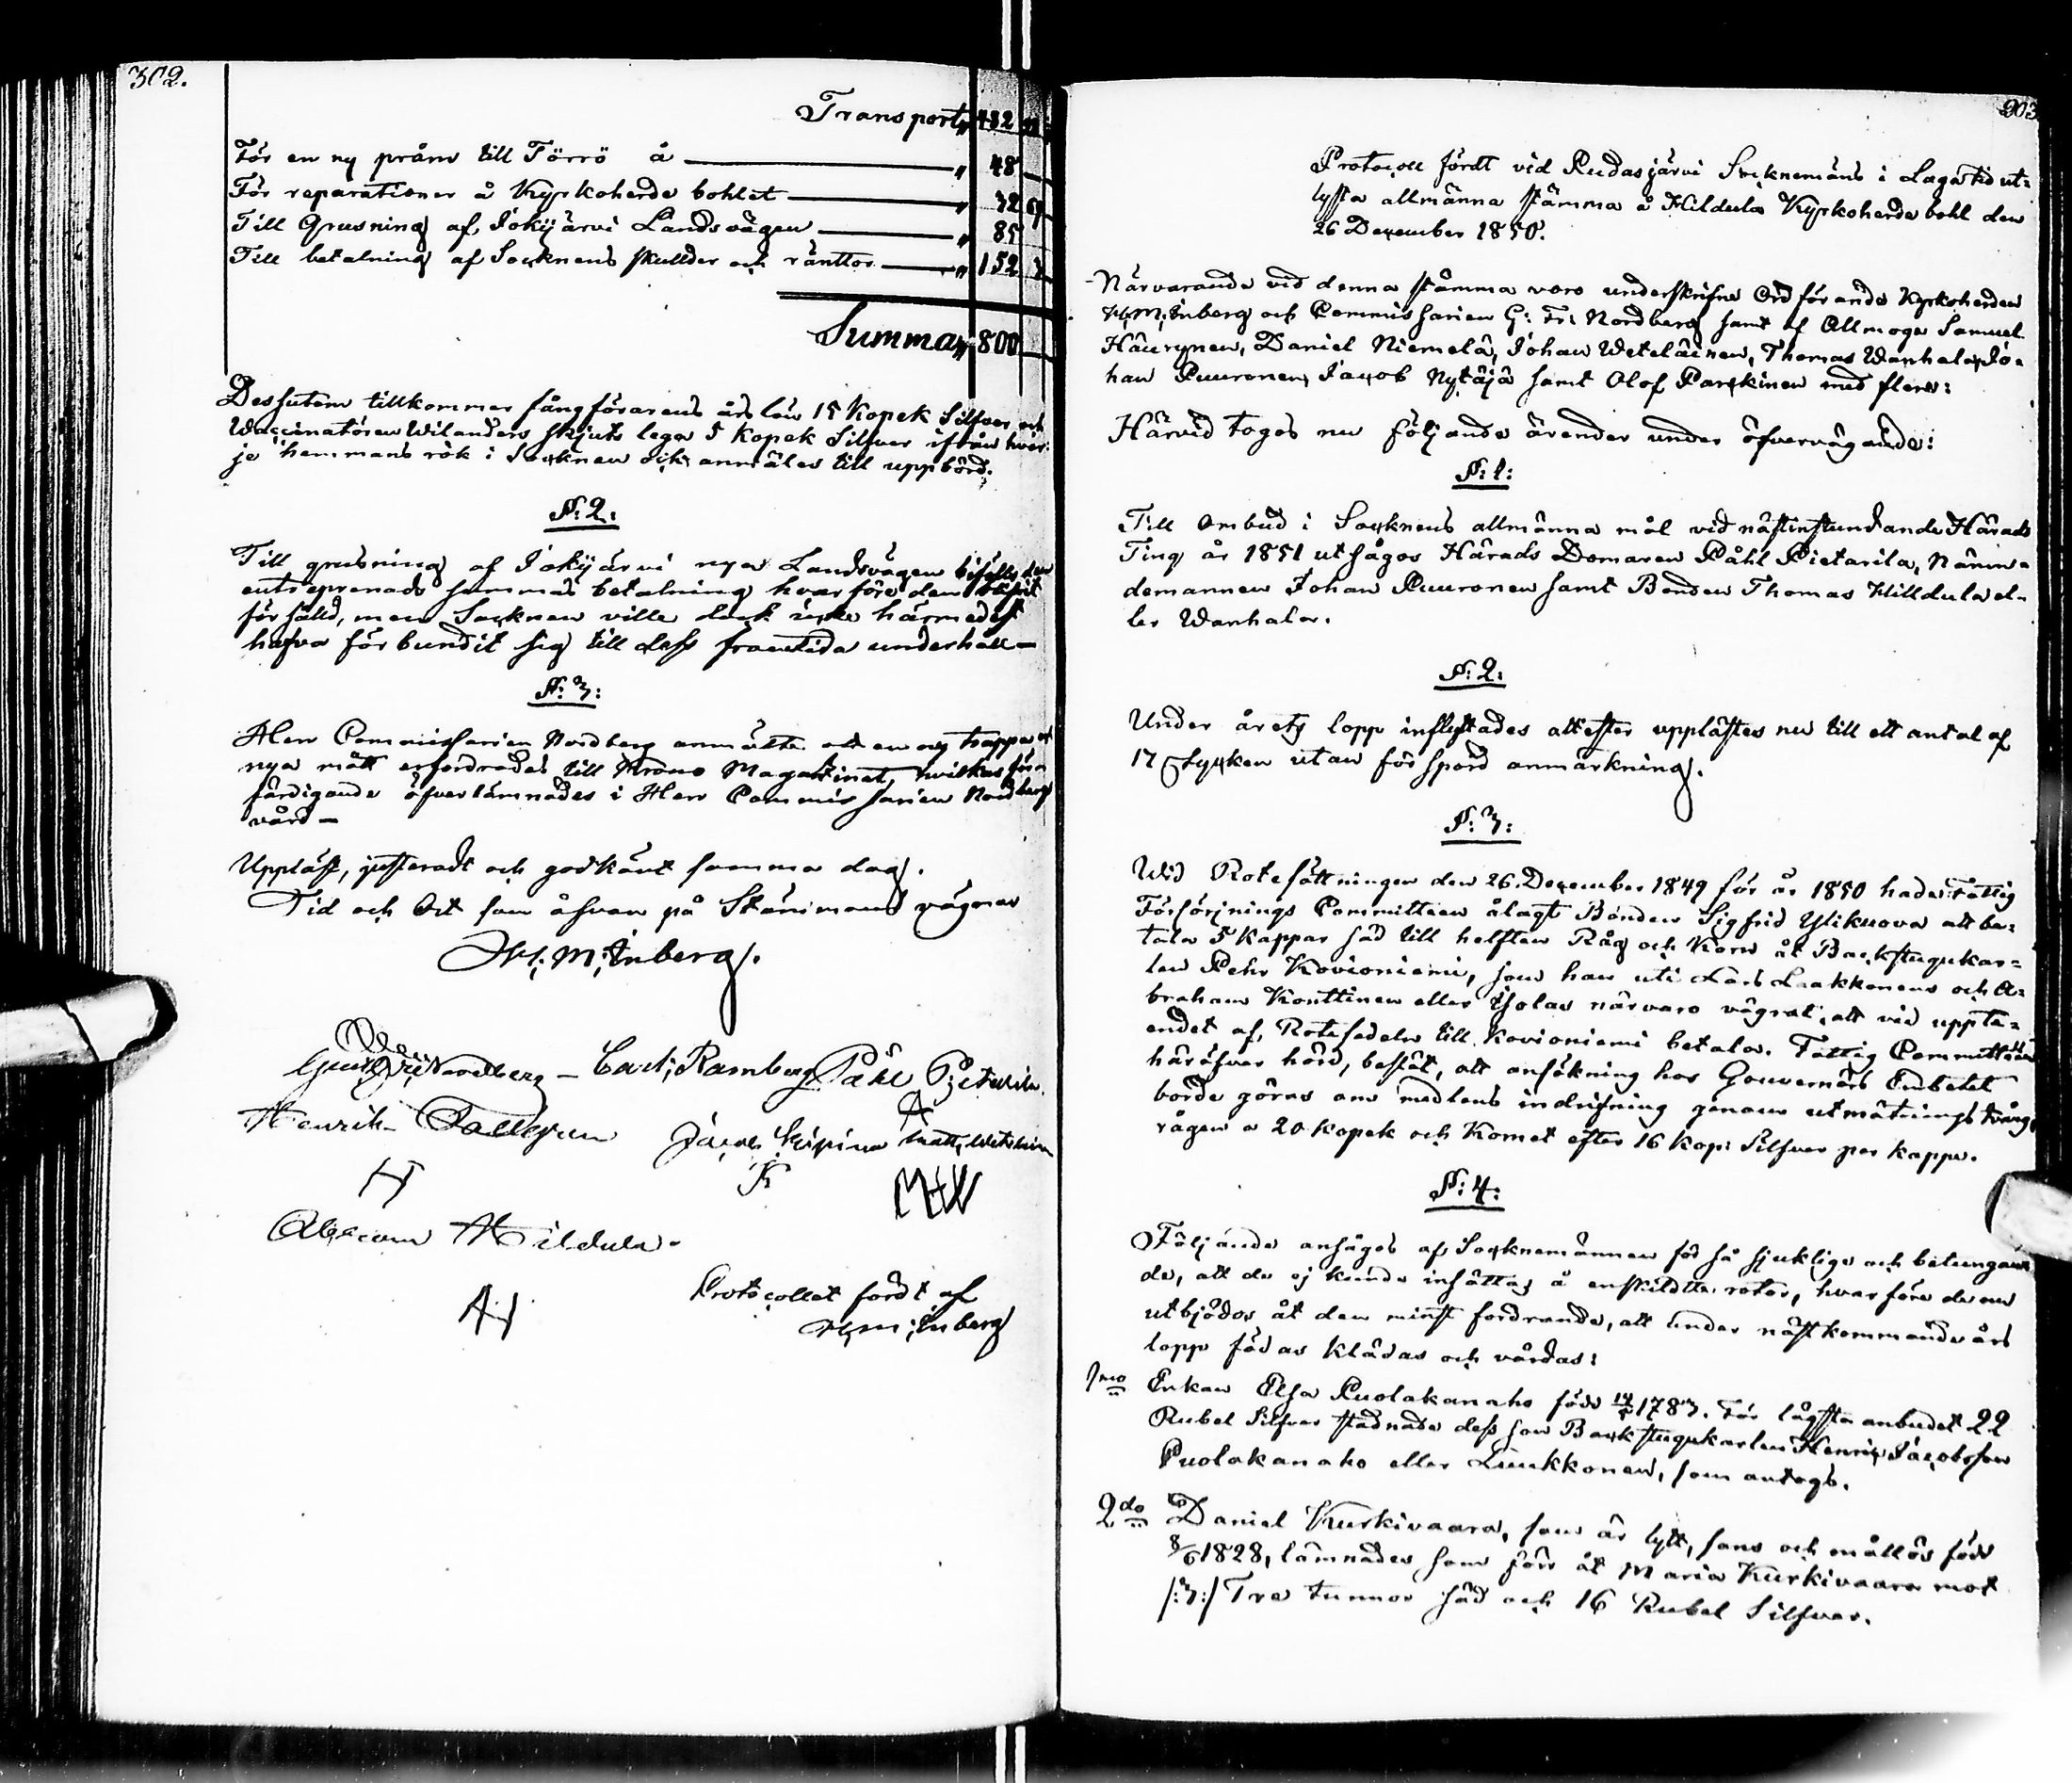 302.
Transport „ 482
För en ny pråm till Törrö å „ 48
För reparationer å Kyrkoherde bohlet „ 32
Till Grusning af Jokijärvi Landsvägen „ 85
Till betalning af Socknens skullder och räntor „ 152
Summa „ 800
Dessutom tillkommer fångförarens års lön 15 Kopek Silfver och
Waccinatören Wilanders skjuts lega 5 Kopek Silfver ifrån hvar:
je hemmans rök i Socknen och anmäles till uppbörd.
§: 2:
Till grusning af Jokijärvi nya Landsvägen bifölls den
entreprenads summas betalning hvarföre den blifvit
försåld, men Socknen ville dock icke härmedelst
hafva förbundit sig till dess framtida underhåll —
§: 3:
Herr Commissarien Nordberg anmälte att en ny trappa och
nya mått erfordrades till Krono Magazinet, hvilkas för=
färdigande öfverlämnades i Herr Commissarien Nordbergs
vård —
Uppläst, justeradt och godkänt samma dag.
Tid och Ort som åfvan på Stämmans vägnar
H: M: Inberg.
Gust: Fri: Nordberg — Carl: Ramberg Påhl Pietarila.
Henrik Jacob Matts
H K MHW
Abram Hildula.
AH
Protocollet fördt af
H: M: Inberg
303.
Protocoll fördt vid Pudasjärvi Socknemäns i Laga tid ut=
lysta allmänna stämma å Hildula Kyrkoherde bohl den
26 December 1850.
Närvarande vid denna stämma voro underskrifne Ordförande Kyrkoherden
H: M: Inberg och Commissarien G: Fr: Nordberg samt af Allmoge Samuel
Haurynen, Daniel Niemelä, Johan Weteläinen, Thomas Wanhala, Jo=
han Puuronen, Jacob Nytäjä samt Olof Parkkinen med flere:
Härvid togos nu följande ärender under öfvervägande:
§: 1:
Till Ombud i Socknens allmänna mål vid nästinstundande Härads
Ting år 1851 utsågos Härads Domaren Påhl Pietarila, Nämn=
demannen Johan Puuronen samt Bonden Thomas Hilldula el=
ler Wanhala.
§: 2:
Under årets lopp inflyttades attester upplästes nu till ett antal af
17 Stycken utan försport anmärkning.
§: 3:
Wid Rotesättningen den 26 December 1849 för år 1850 hade Fattig
Försörjnings Committeen ålagt Bonden Sigfrid Ylikuova att be=
tala 5 Kappar säd till helften Råg och Korn åt Backstugukar=
len Pehr Kovioniemi, som han uti Lars Laakkonens och A=
braham Konttinen eller Isolas närvaro vägrat, att vid uppte=
endet af Rotesedeln till Kovioniemi betala. Fattig Committeen
häröfver hörd, beslöt, att ansökning hos Gouvernörs Embetet
borde göras om medlens indrifning genom utmätnings tvång,
rågen a 20 kopek och Kornet efter 16 kop: Silfver per kappe.
§: 4:
Följande ansågos af Socknemännen för så sjuklige och betungan=
de, att de ej kunde insättas å enskildta rotar, hvarföre de nu
utbjödos åt den minst fordrande, att under nästkommande års
lopp födas klädas och vårdas:
1mo Enkan Elsa Puolakanaho född 14/5 1783. För lägsta anbudet 22
Rubel Silfver stadnade dess son Backstugukarlen Henric Jacobsson
Puolakanaho eller Liukkonen, som antogs.
2do Daniel Kurkivaara, som är lytt, sans och mållös född
8/6 1828, lämnades som förr åt Maria Kurkivaara mot
/:3:/ Tre tunnor säd och 16 Rubel Silfver.